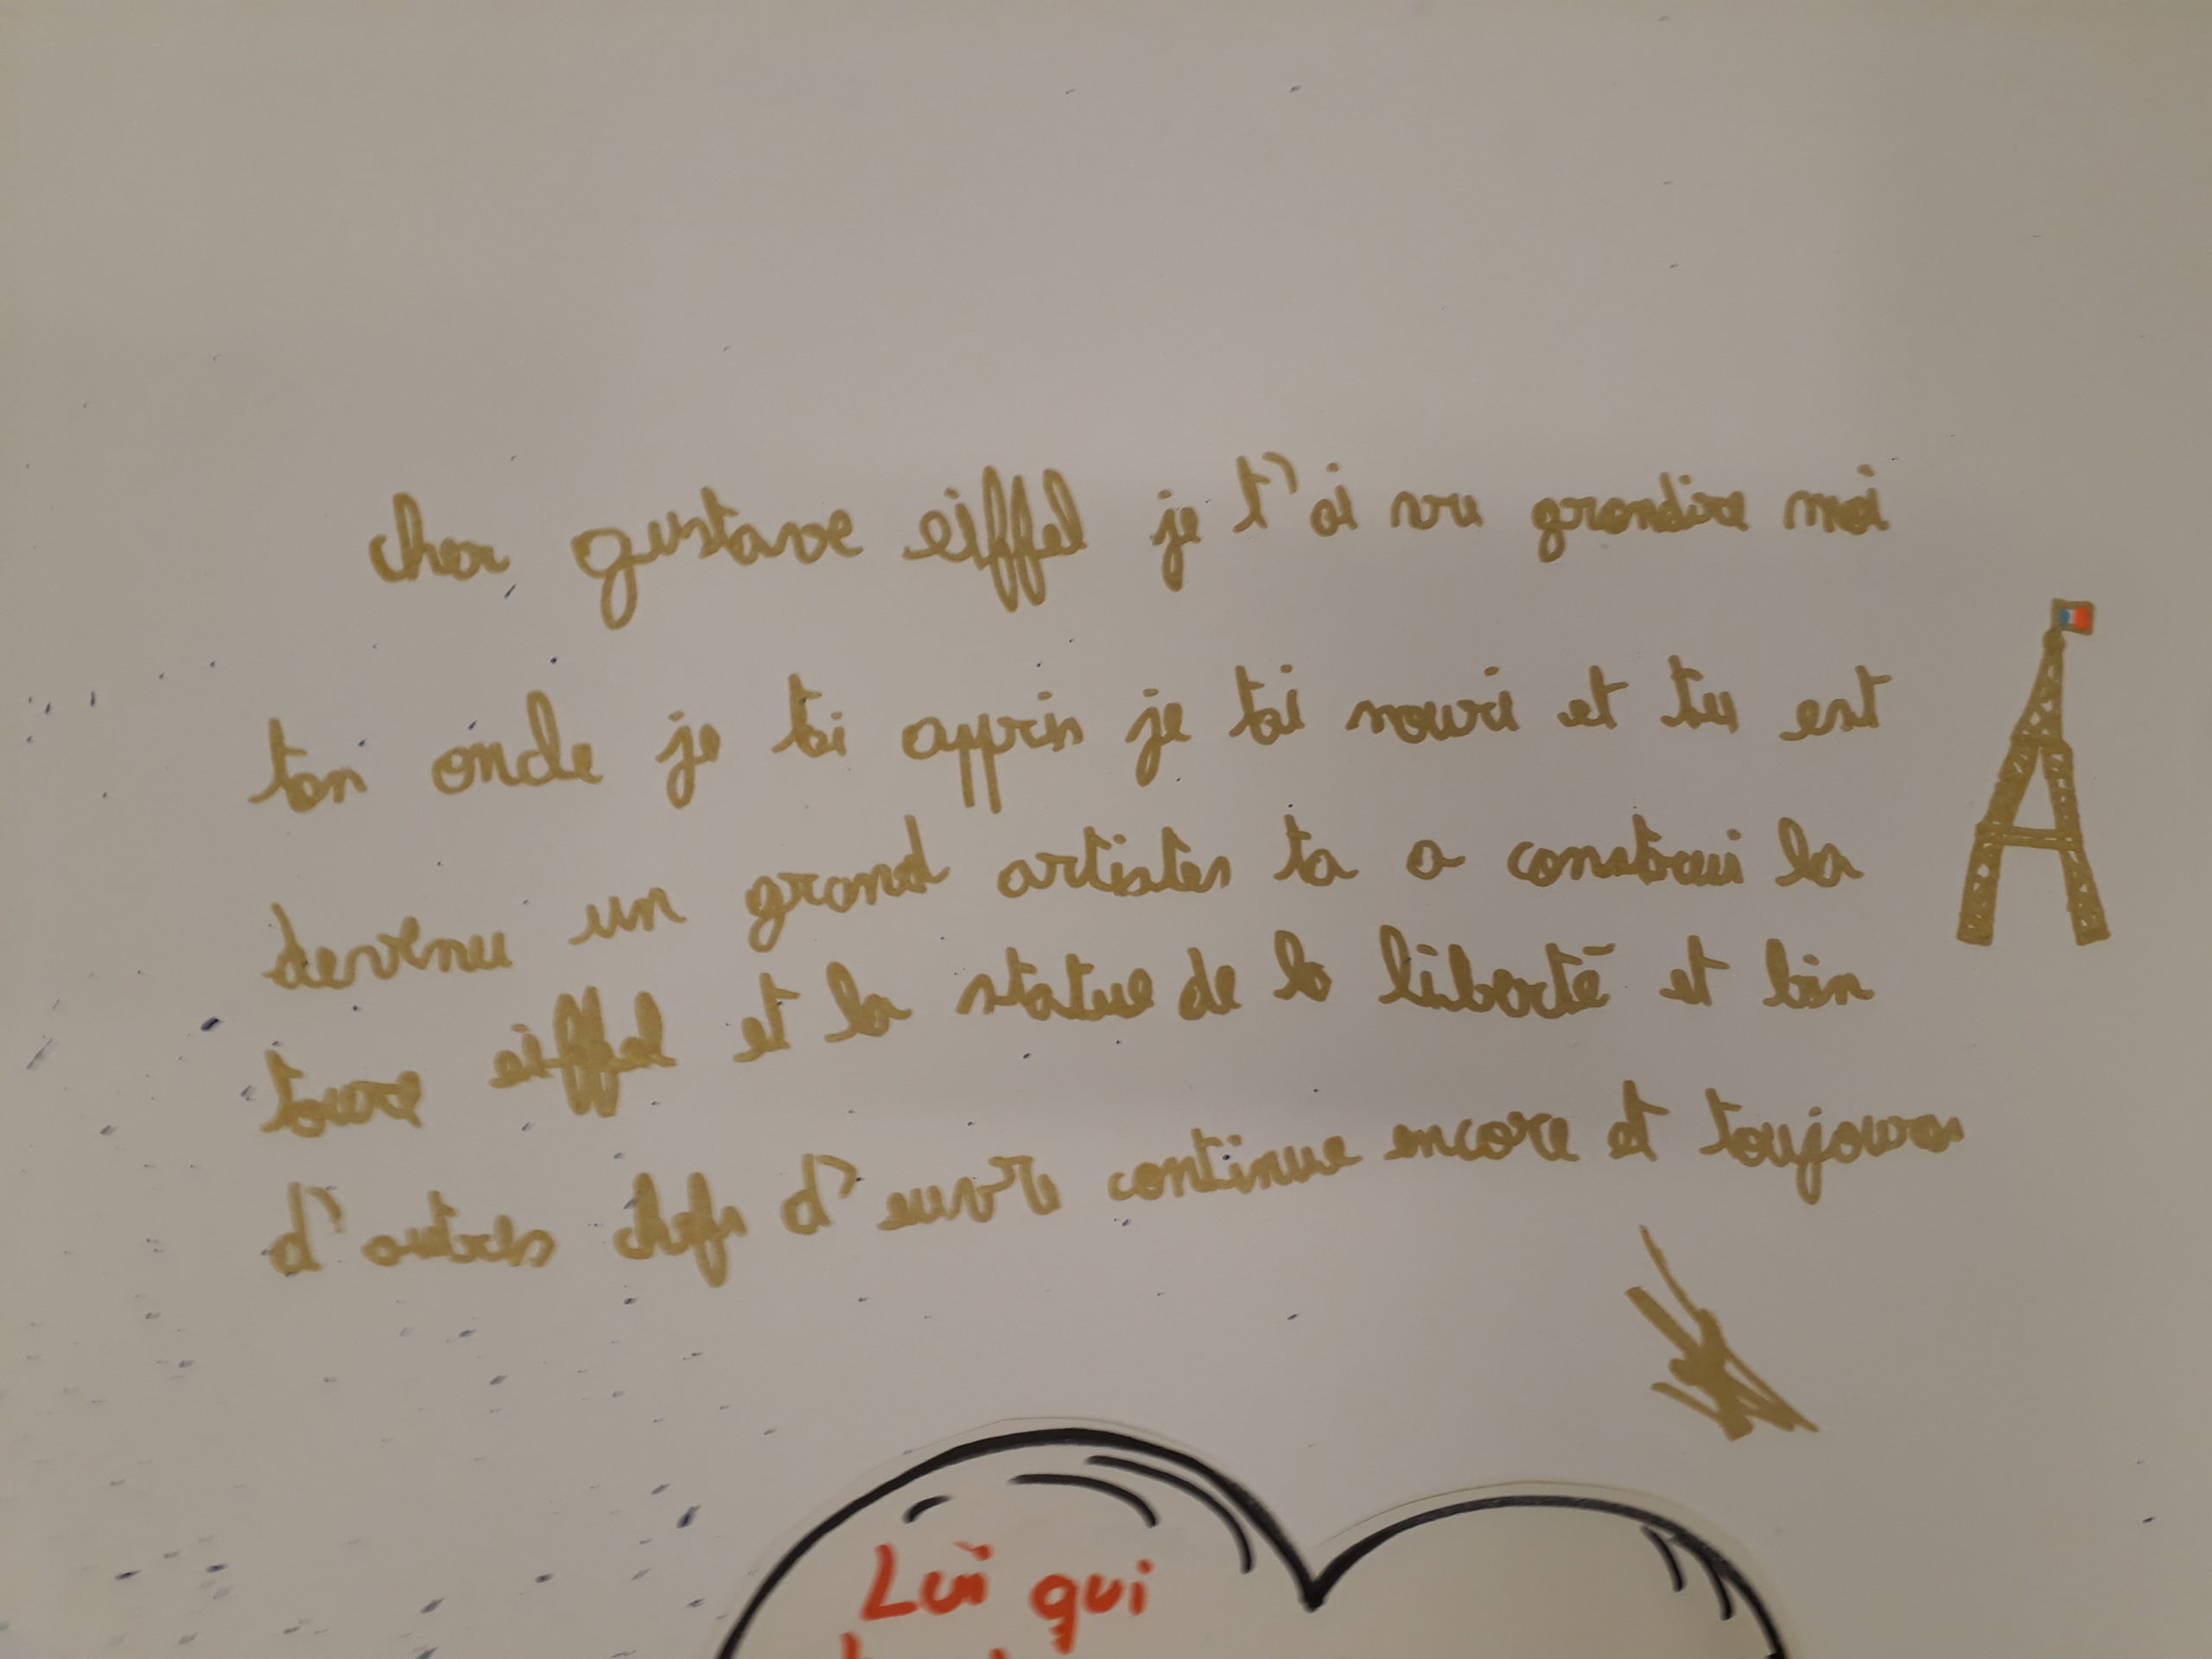 cher gustave eiffel je t'ai vu grandire moi
ton oncle je tai appris je tai nouri et tu est
devenu un grand artistes ta a construi la
toure eiffel et la statue de la liberté et bin
d'autres chefs d'euvre continue encore et toujours
Lui qui